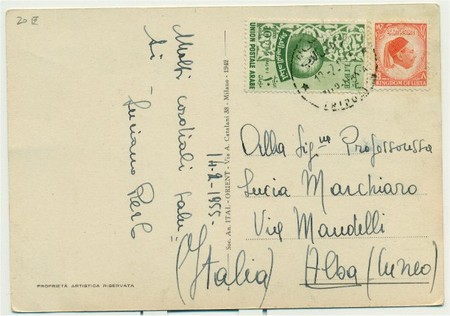 20 E
Molti cordiali salu
ti
Luciano
14-2-1955-
Soc. An. ITAL-ORIENT - Via A. Catalani 38 - Milano - 1948
PROPRIETÀ ARTISTICA RISERVATA
UNION POSTALE ARABE
KINGDOM OF LIBYA
Alla Sig.na Professoressa
Lucia Marchiaro
Via Mandelli
Alba (Cuneo)
(Italia)